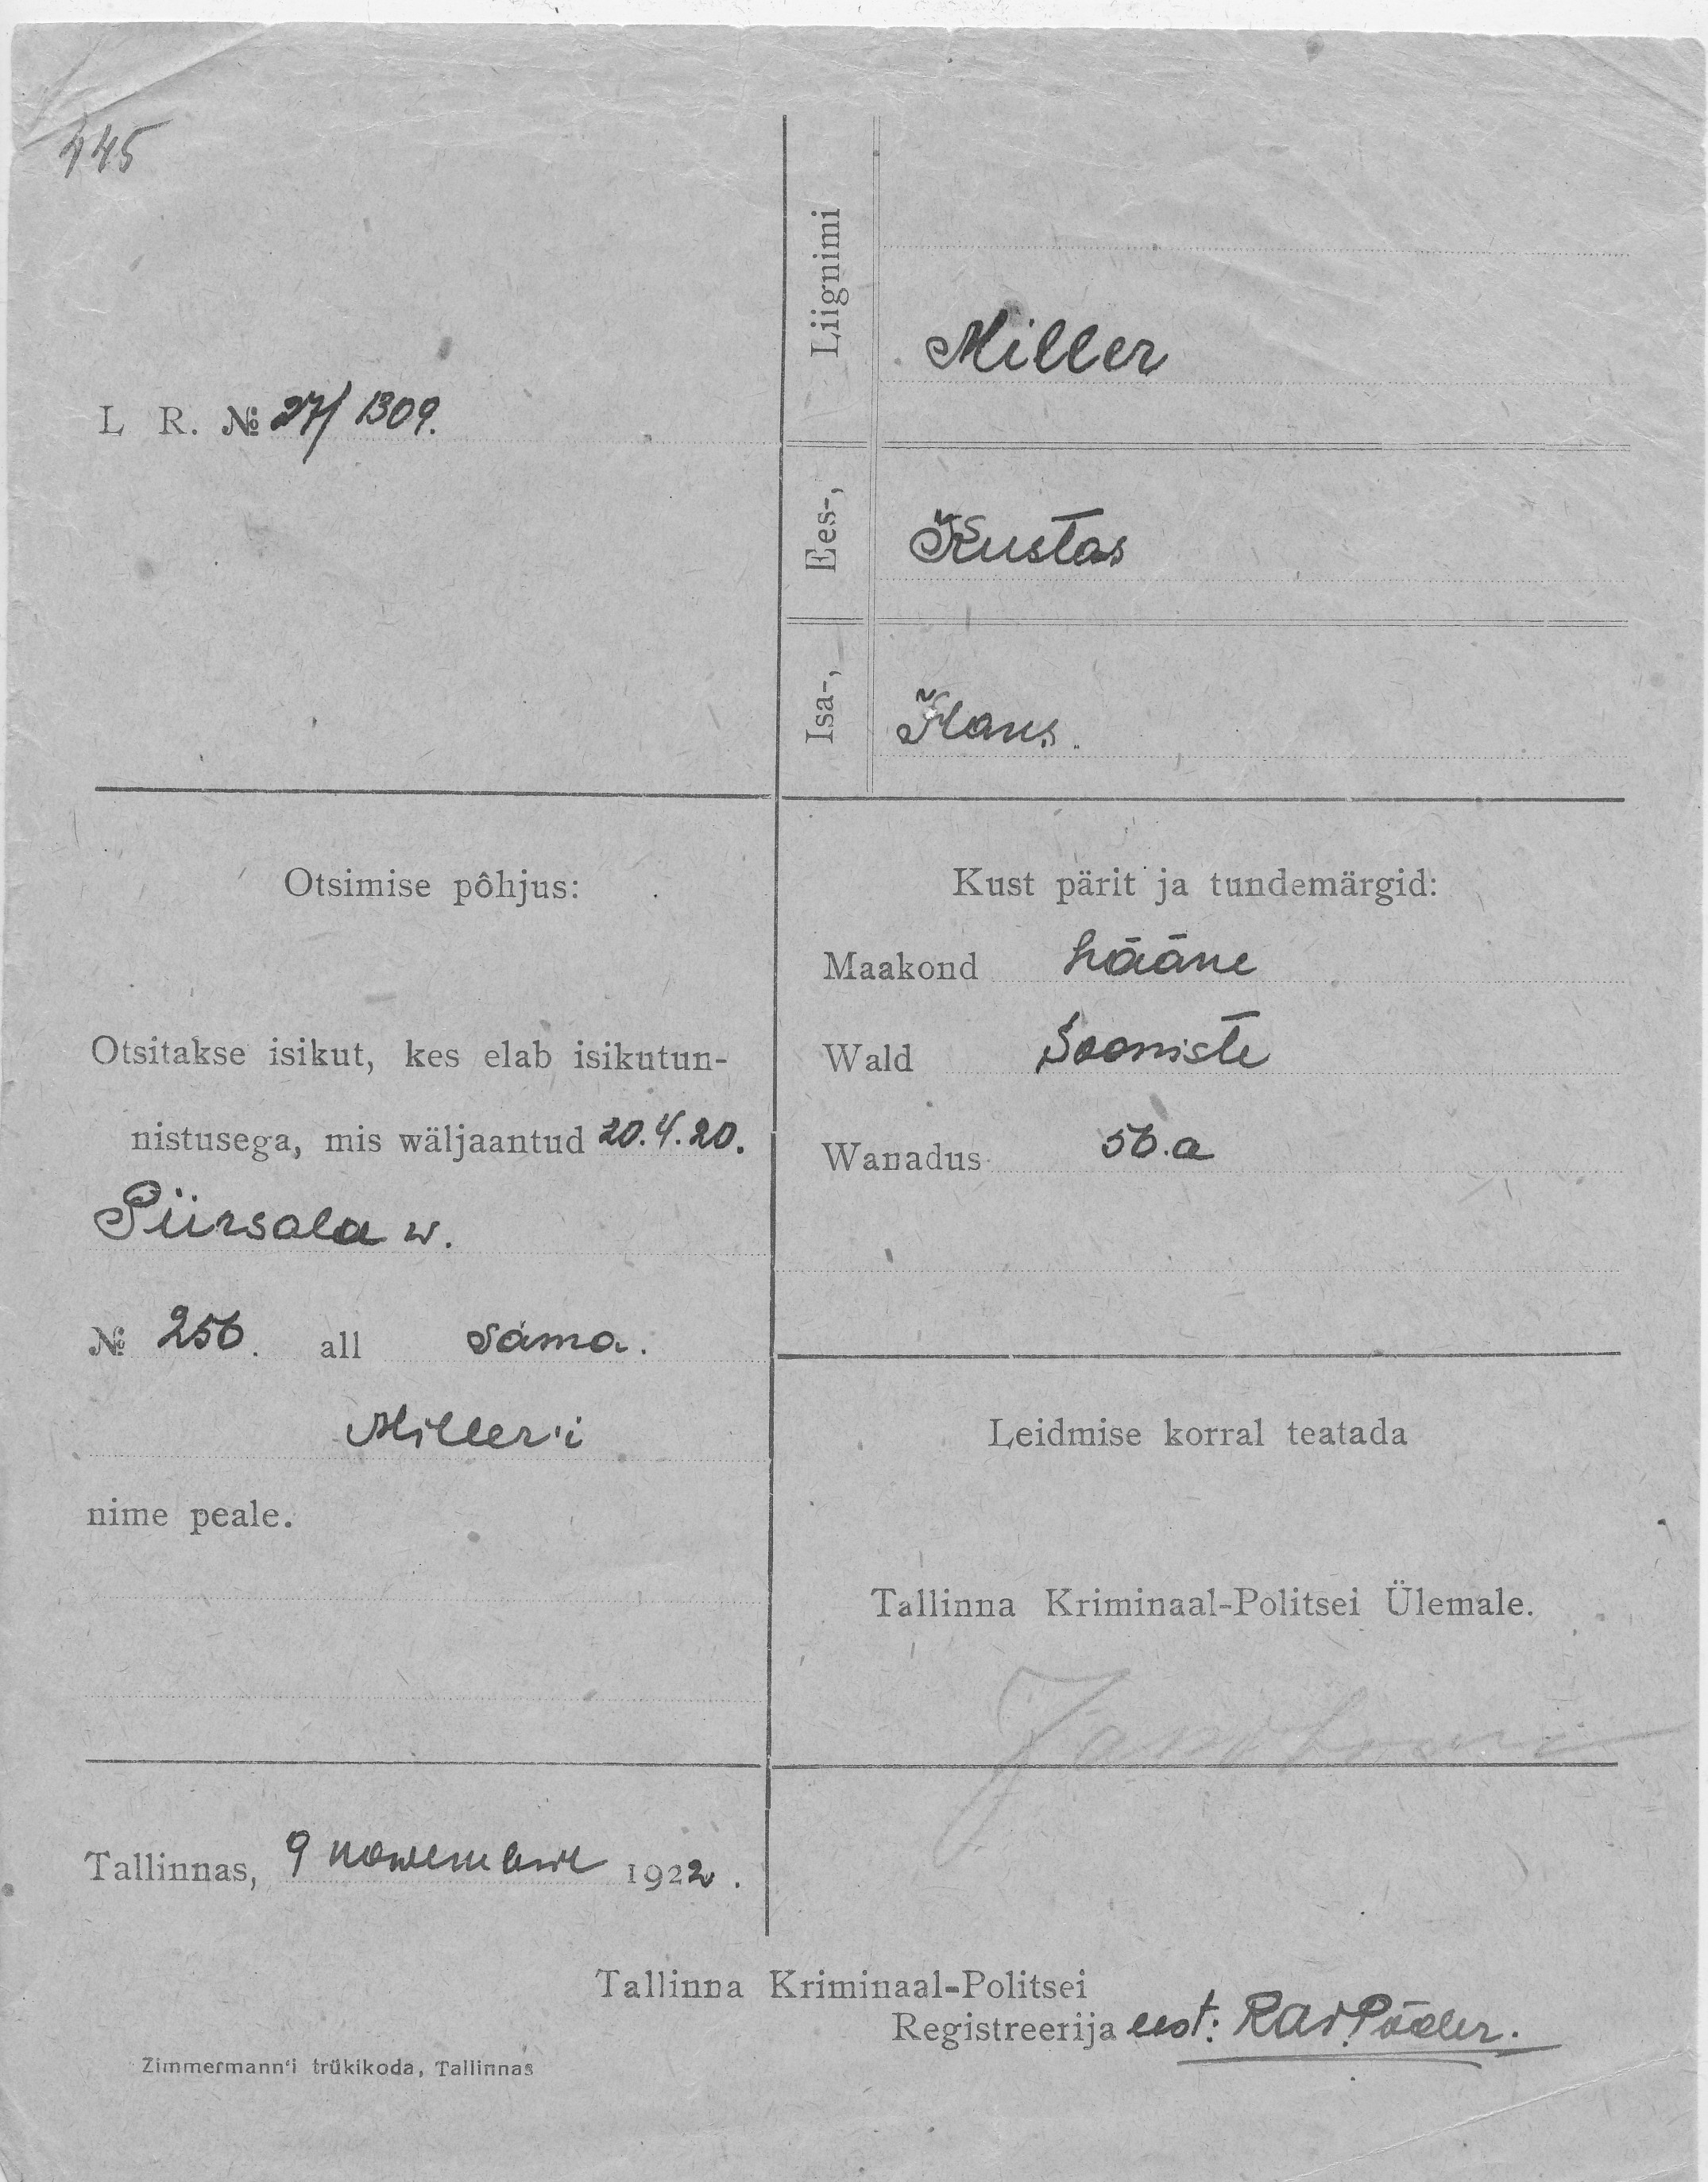 445
L R. № 27/1309.
Liignimi
Miller
Ees-,
Kustas
Isa-,
Hans.
Otsimise põhjus:
Otsitakse isikut, kes elab isikutun-
nistusega, mis wäljaantud 20.4.20.
Piirsala w.
№ 256. all sama.
Miller'i
nime peale.
Tallinnas, 9 nowembril 1922.
Kust pärit ja tundemärgid:
Maakond Lääne
Wald Sooniste
Wanadus 56.a
Leidmise korral teatada
Tallinna Kriminaal-Politsei Ülemale.
Tallinna Kriminaal-Politsei
Registreerija eest:
Zimmermann'i trükikoda, Tallinnas